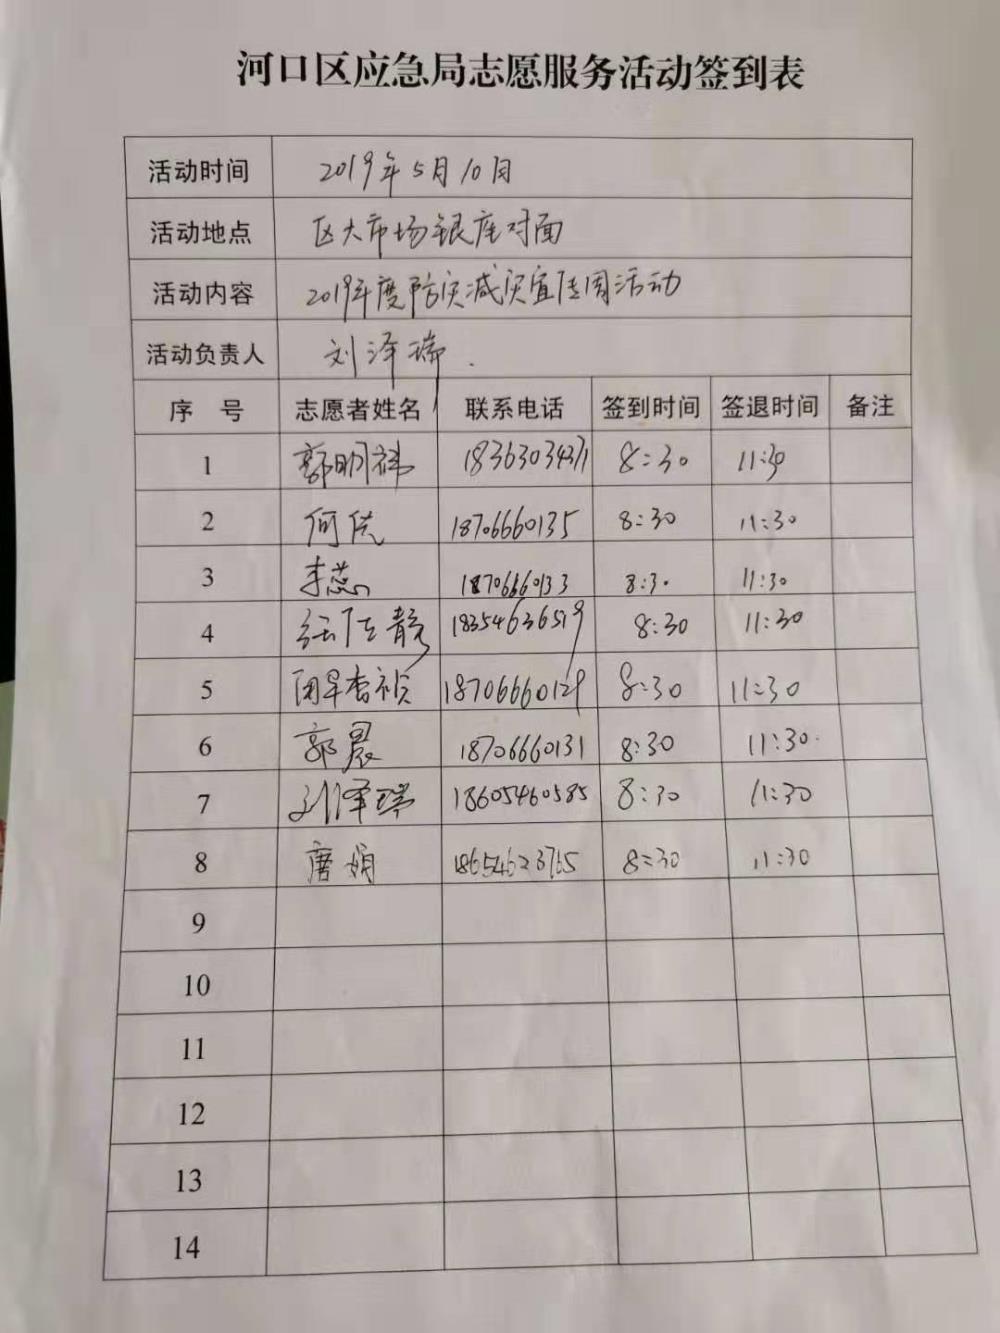 河口区应急局志愿服务活动签到表
活动时间 2019年5月10日
活动地点 区大市场银座对面
活动内容 2019年度防灾减灾宣传周活动
活动负责人 刘泽瑞.
序 号 志愿者姓名 联系电话 签到时间 签退时间 备注
1 郭明祎 18363034371 8:30 11:30
2 何 18706660135 8:30 11:30
3 李蕊 18706660133 8:30 11:30
4 静 18354636519 8:30 11:30
5 18706660129 8:30 11:30
6 郭晨 18706660131 8:30 11:30
7 刘泽瑞 18605460585 8:30 11:30
8 唐娟 18654623765 8:30 11:30
9
10
11
12
13
14